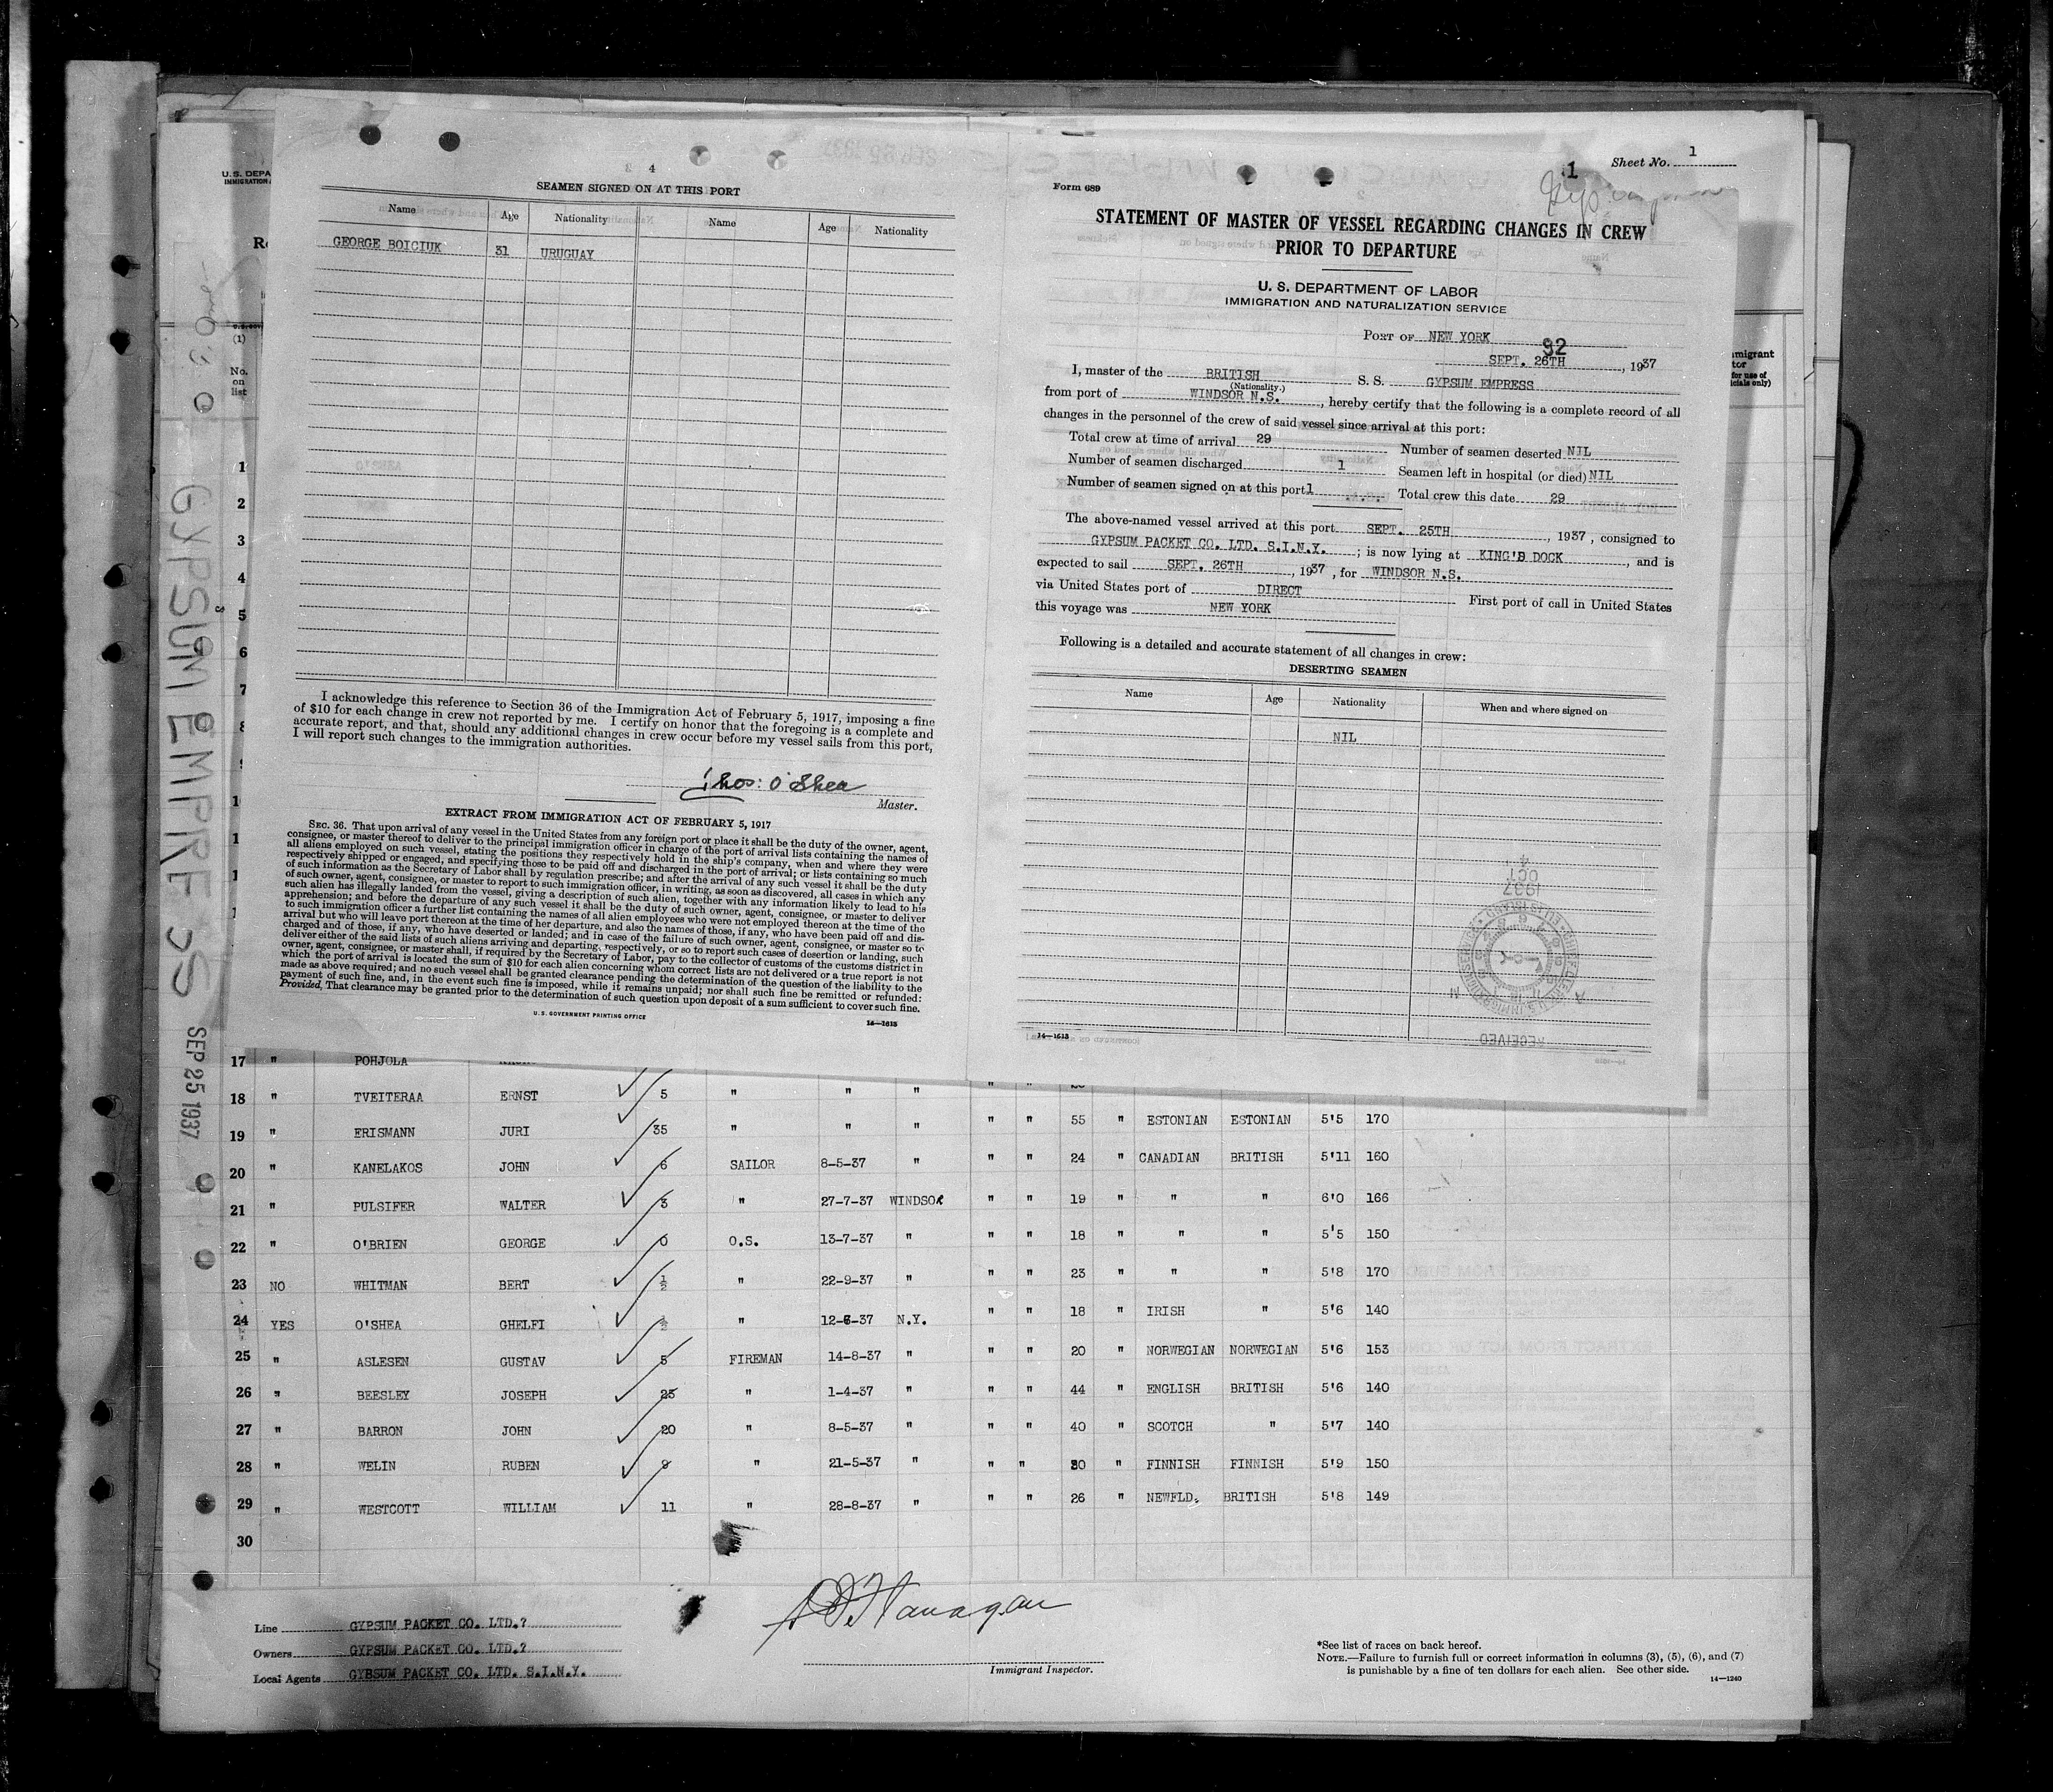 4
SEAMEN SIGNED ON AT THIS PORT
Name Age Nationality Name Age Nationality
GEORGE BOICIUK 31 URUGUAY
I acknowledge this reference to Section 36 of the Immigration Act of February 5, 1917, imposing a fine
of $10 for each change in crew not reported by me. I certify on honor that the foregoing is a complete and
accurate report, and that, should any additional changes in crew occur before my vessel sails from this port,
I will report such changes to the immigration authorities.
Thos: O'Shea
Master.
EXTRACT FROM IMMIGRATION ACT OF FEBRUARY 5, 1917
SEC. 36. That upon arrival of any vessel in the United States from any foreign port or place it shall be the duty of the owner, agent,
consignee, or master thereof to deliver to the principal immigration officer in charge of the port of arrival lists containing the names of
all aliens employed on such vessel, stating the positions they respectively hold in the ship's company, when and where they were
respectively shipped or engaged, and specifying those to be paid off and discharged in the port of arrival; or lists containing so much
of such information as the Secretary of Labor shall by regulation prescribe; and after the arrival of any such vessel it shall be the duty
of such owner, agent, consignee, or master to report to such immigration officer, in writing, as soon as discovered, all cases in which any
such alien has illegally landed from the vessel, giving a description of such alien, together with any information likely to lead to his
apprehension; and before the departure of any such vessel it shall be the duty of such owner, agent, consignee, or master to deliver
to such immigration officer a further list containing the names of all alien employees who were not employed thereon at the time of the
arrival but who will leave port thereon at the time of her departure, and also the names of those, if any, who have been paid off and dis-
charged and of those, if any, who have deserted or landed; and in case of the failure of such owner, agent, consignee, or master so to
deliver either of the said lists of such aliens arriving and departing, respectively, or so to report such cases of desertion or landing, such
owner, agent, consignee, or master shall, if required by the Secretary of Labor, pay to the collector of customs of the customs district in
which the port of arrival is located the sum of $10 for each alien concerning whom correct lists are not delivered or a true report is not
made as above required; and no such vessel shall be granted clearance pending the determination of the question of the liability to the
payment of such fine, and, in the event such fine is imposed, while it remains unpaid; nor shall such fine be remitted or refunded:
Provided, That clearance may be granted prior to the determination of such question upon deposit of a sum sufficient to cover such fine.
U. S. GOVERNMENT PRINTING OFFICE 14—1613
1 Sheet No. 1
Form 689
STATEMENT OF MASTER OF VESSEL REGARDING CHANGES IN CREW
PRIOR TO DEPARTURE
U. S. DEPARTMENT OF LABOR
IMMIGRATION AND NATURALIZATION SERVICE
PORT OF NEW YORK
92
SEPT. 26TH, 1937
I, master of the BRITISH S. S. GYPSUM EMPRESS
(Nationality.)
from port of WINDSOR N.S., hereby certify that the following is a complete record of all
changes in the personnel of the crew of said vessel since arrival at this port:
Total crew at time of arrival 29 Number of seamen deserted NIL
Number of seamen discharged 1 Seamen left in hospital (or died) NIL
Number of seamen signed on at this port 1 Total crew this date 29
The above-named vessel arrived at this port SEPT. 25TH, 1937, consigned to
GYPSUM PACKET CO. LTD. S.I.N.Y. ; is now lying at KING'S DOCK, and is
expected to sail SEPT. 26TH, 1937, for WINDSOR N.S.
via United States port of DIRECT First port of call in United States
this voyage was NEW YORK
Following is a detailed and accurate statement of all changes in crew:
DESERTING SEAMEN
Name Age Nationality When and where signed on
NIL
1937
OCT
4
RECEIVED
14—1613
U. S. DEPA
IMMIGRATION
(1)
No.
on
list
1
2
3
4
5
6
7
GYPSUM EMPRESS
SEP 25 1937
17 " POHJOLA
18 " TVEITERAA ERNST 5 " " " " "
19 " ERISMANN JURI 35 " " " " " 55 " ESTONIAN ESTONIAN 5'5 170
20 " KANELAKOS JOHN 6 SAILOR 8-5-37 " " " 24 " CANADIAN BRITISH 5'11 160
21 " PULSIFER WALTER 3 " 27-7-37 WINDSOR " " 19 " " " 6'0 166
22 " O'BRIEN GEORGE 0 O.S. 13-7-37 " " " 18 " " " 5'5 150
23 NO WHITMAN BERT ½ " 22-9-37 " " " 23 " " " 5'8 170
24 YES O'SHEA GHELFI ½ " 12-6-37 N.Y. " " 18 " IRISH " 5'6 140
25 " ASLESEN GUSTAV 5 FIREMAN 14-8-37 " " " 20 " NORWEGIAN NORWEGIAN 5'6 153
26 " BEESLEY JOSEPH 25 " 1-4-37 " " " 44 " ENGLISH BRITISH 5'6 140
27 " BARRON JOHN 20 " 8-5-37 " " " 40 " SCOTCH " 5'7 140
28 " WELIN RUBEN 9 " 21-5-37 " " " 30 " FINNISH FINNISH 5'9 150
29 " WESTCOTT WILLIAM 11 " 28-8-37 " " " 26 " NEWFLD. BRITISH 5'8 149
30
Line GYPSUM PACKET CO. LTD.?
Owners GYPSUM PACKET CO. LTD.?
Local Agents GYBSUM PACKET CO. LTD. S.I.N.Y.
Immigrant Inspector.
*See list of races on back hereof.
NOTE.—Failure to furnish full or correct information in columns (3), (5), (6), and (7)
is punishable by a fine of ten dollars for each alien. See other side.
14—1240